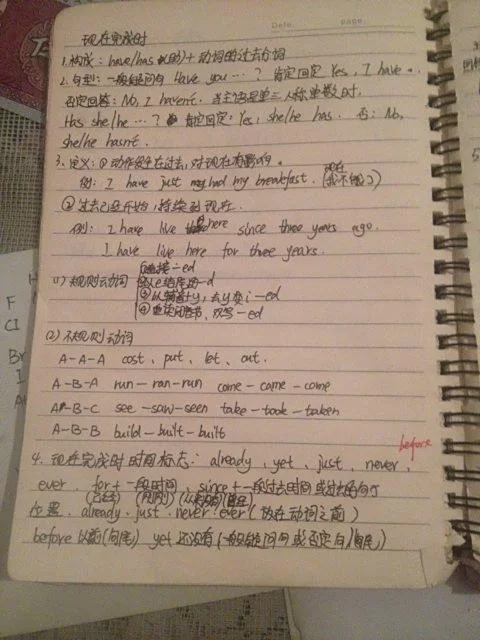 Date. page.
现在完成时
1. 构成: have/has (助) + 动词的过去分词
2. 句型: 一般疑问句 Have you … ? 肯定回定 Yes, I have.
否定回答: No, I haven't. 当主语是第三人称单数时.
Has she/he … ? 肯定回定: Yes, she/he has. 否: No,
she/he hasn't.
3. 定义: ① 动作发生在过去, 对现在有影响.
例: I have just had my breakfast. (我不饿)
现在
② 过去已经开始, 持续到现在.
例: I have live here since three years ago.
I have live here for three years.
(1) 规则动词 ①直接-ed
②以e结尾的-d
③以辅音+y, 去y变i-ed
④重读闭音节, 双写-ed
(2) 不规则动词
A-A-A cost, put, let, cut.
A-B-A run-ran-run come-came-come
A-B-C see-saw-seen take-took-taken
A-B-B build-built-built
before
4. 现在完成时时间标志: already, yet, just, never,
ever, for+一段时间, since+一段过去时间或过去的句子
(已经) (刚刚) (从来没有)
位置. already. just. never. ever (放在动词之前)
before 以前(句尾) yet 还没有(一般疑问句或否定句)句尾)
F
CI
Br
I